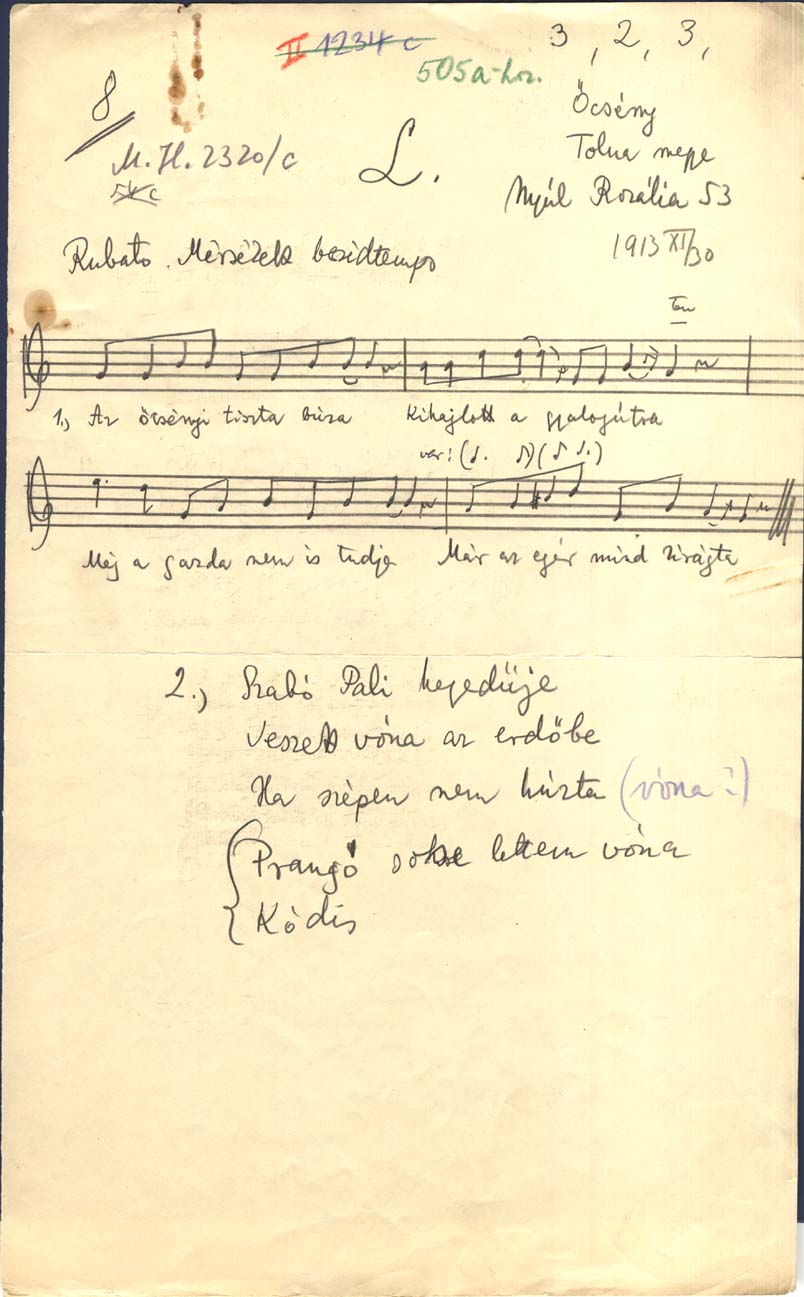 II 1234 c
505a-hoz.
3, 2, 3,
8
M. H. 2320/c
L.
Őcsény
Tolna megye
Nyúl Rozália 53
1913 XI/30
Rubato. Mérsékelt beszédtempo
ten
1., Az őcsényi tiszta búza Kihajlott a gyalogútra
var:
Még a gazda nem is tudja Már az egér mind zirágta
2., Szabó Pali hegedűje
Veszett vóna az erdőbe
Ha szépen nem húzta (vóna?)
Prangó sohse lettem vóna
Kódis